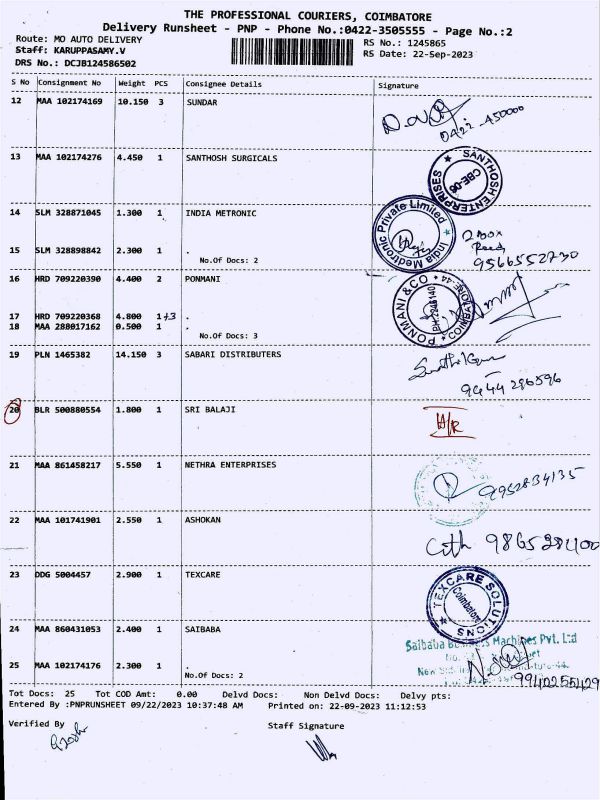 THE PROFESSIONAL COURIERS, COIMBATORE
Delivery Runsheet - PNP - Phone No.:0422-3505555 - Page No.:2
Route: MO AUTO DELIVERY RS No.: 1245865
Staff: KARUPPASAMY.V RS Date: 22-Sep-2023
DRS No.: DCJB124586502
S No Consignment No Weight PCS Consignee Details Signature
12 MAA 102174169 10.150 3 SUNDAR
0422-450000
13 MAA 102174276 4.450 1 SANTHOSH SURGICALS
SANTHOSH ENTERPRISES CBE-06
14 SLM 328871045 1.300 1 INDIA METRONIC
India Medtronic Private Limited
2 Box
15 SLM 328898842 2.300 1 .
No.Of Docs: 2
9566552730
16 HRD 709220390 4.400 2 PONMANI
PONMANI & CO COIMBATORE-44
17 HRD 709220368 4.800 1+3 .
18 MAA 288017162 0.500 1 .
No.Of Docs: 3
19 PLN 1465382 14.150 3 SABARI DISTRIBUTERS
9444296596
20 BLR 500880554 1.800 1 SRI BALAJI
21 MAA 861458217 5.550 1 NETHRA ENTERPRISES
9952834135
22 MAA 101741901 2.550 1 ASHOKAN
23 DDG 5004457 2.900 1 TEXCARE
TEXCARE SOLUTIONS Coimbatore
24 MAA 860431053 2.400 1 SAIBABA
Saibaba Business Machines Pvt. Ltd
25 MAA 102174176 2.300 1 .
No.Of Docs: 2
Tot Docs: 25 Tot COD Amt: 0.00 Delvd Docs: Non Delvd Docs: Delvy pts:
Entered By :PNPRUNSHEET 09/22/2023 10:37:48 AM Printed on: 22-09-2023 11:12:53
Verified By Staff Signature